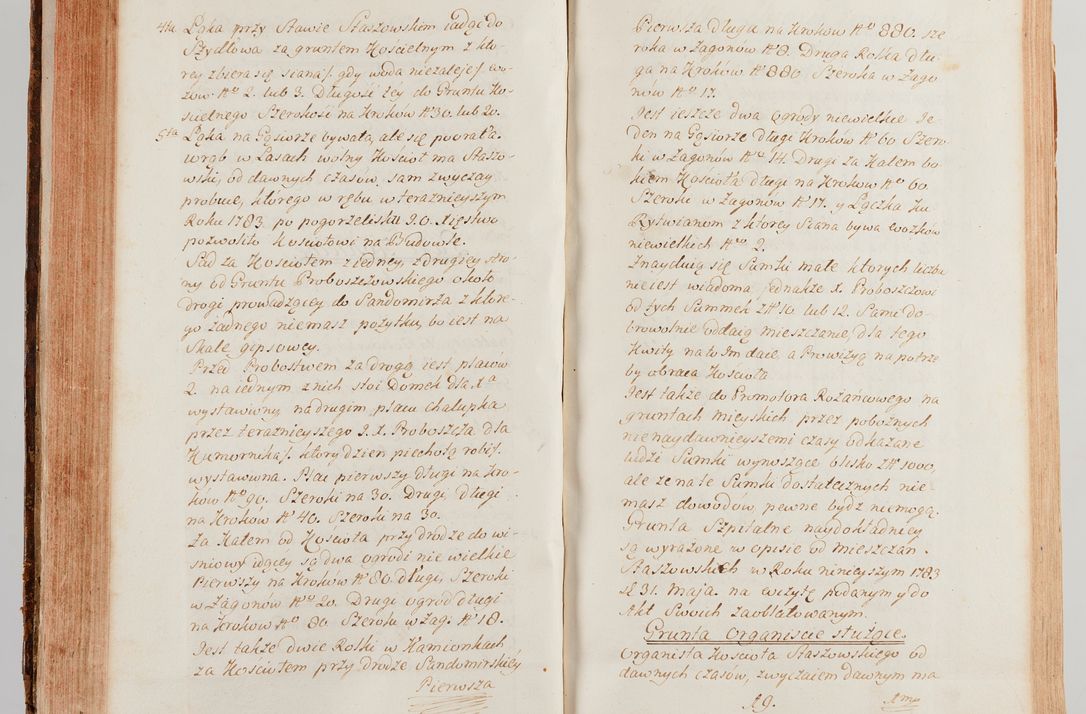 4ta Łąka przy Stawie Staszowskim iadąc do
Szydłowa za gruntem Kościelnym z któ-
rey zbiera się siana /. gdy woda niezaleje /. wo-
zow Nro 2. lub 3. Długość tey do Gruntu Ko-
ścielnego Szerokość na Kroków N 30. lub 20.
5ta Łąka na Gąsiorze bywała, ale się porosła.
wrąb w Lasach wolny Kościoł ma Staszo-
wski, od dawnych czasów, sam zwyczay
probuie, którego w rębu w teraznieyszym
Roku 1783. po pogorzelisku J.O. Xięstwo
pozwoliło Kościołowi na Budowle.
Sad za Kościołem z iedney, z drugiey stro-
ny od Gruntu Proboszczowskiego około
drogi prowadzącey do Sandomirza z które-
go żadnego niemasz pożytku, bo iest na
Skale gipsowey.
Przed Probostwem za drogą iest placów
2. na iednym z nich stoi Domek dla Xa
wystawiony, na drugim placu chałupka
przez teraznieyszego J. X. Proboszcza dla
Kumornika /. ktory dzien piechotą robi /.
wystawiona. Plac pierwszy długi na Kro-
ków Nro 90. Szeroki na 30. drugi Długi
na Kroków N 40. Szeroki na 30.
Za Katem od Kościoła przy drodze do wi-
śniowy idącey są dwa ogrodi nie wielkie
Pierwszy na Kroków N 80. długi, Szeroki
w Zagonów Nro 20. Drugi ogrod długi
na Kroków Nro 80 Szeroki w zag: N 18.
Jest także dwie Rolki w Kamionkach
za Kościołem przy drodze Sandomirskiey
Pierwsza
Pierwsza długa na Kroków Nro 880. sze
roka w Zagonów N 8. Druga Rolka dłu-
ga na Kroków N 880 Szeroka w Zago
nów Nro 17.
Jest ieszcze dwa ogrody niewielkie Je-
den na Gąsiorze długi Kroków N 60 Szero-
ki w Zagonów Nro 14. Drugi za Katem bo
kiem Kościoła długi na Kroków Nro 60
Szeroki w Zagonów N 17. y Łączka Ku
Rytwianom z którey Siana bywa wozków
niewielkich Nro 2.
Znayduią się Sumki małe ktorych liczba
nie iest wiadoma jednakże X. Proboszczowi
od tych Summek Zł 10. lub 12. Sami do-
browolnie oddaią mieszczanie, dla tego
Kwity na to Im daie, a Prowizyą na potrze
by obraca Kościoła
Jest także do Promotora Rożańcowego na
gruntach mieyskich przez pobożnych
nie naydawnieyszemi czasy odkazane
ludzi Sumki wynoszące blisko Zł 1000,
ale że na te Sumki dostatecznych nie-
masz dowodów, pewne bydz niemogą.
Grunta Szpitalne naydokładniey
są wyrażone w opisie od mieszczan
Staszowskich w Roku ninieyszym 1783
d 31. Maja. na wizytę podanym y do
Akt Swoich zaoblatowanym.
Grunta Organiście służące.
Organista Kościoła Staszowskiego od
dawnych czasów, zwyczaiem dawnym ma
A9.